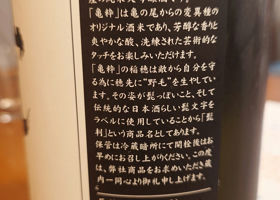 「亀粋」は亀の尾からの変異種の
オリジナル酒米であり、芳醇な香りと
爽やかな酸、洗練された芸術的な
タッチをお楽しみいただけます。
「亀粋」の稲穂は敵から自分を守る
為に穂先に"野毛"を生やしていま
す。その姿が髭っぽいこと、そして
伝統的な日本酒らしい髭文字を
ラベルに使用していることから「髭
判」という商品名としてあります。
保管は冷蔵暗所にて開栓後はお
早めにお召し上がりください。この度
は、弊社商品をお求めいただき蔵
内一同心より御礼申し上げます。